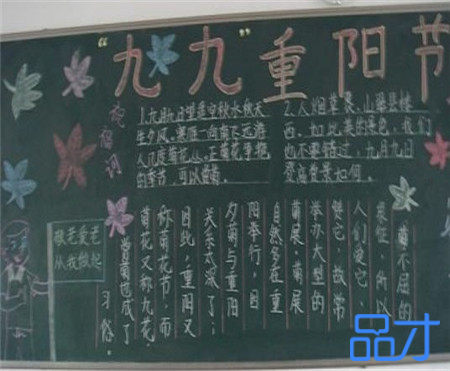 “九九”重阳节
祝福
1.九月九日望遥空秋水秋天
生夕风。寒雁一向南飞远游
人几度菊花丛。正菊花争艳
的季节,可以赏菊。
2.人烟
西。如此美的景色,我们
也不要错过,九月九日
登高赏景如何。
菊不屈的
象征,所以
人们爱它、
赞它,故常
举办大型的
菊展。菊展
自然多在重
阳举行,因
菊与重阳
关系太深了;
因此,重阳又
称菊花节,而
菊花又称九花。
赏菊也成了
习俗。
敬老爱老
从我做起
品才